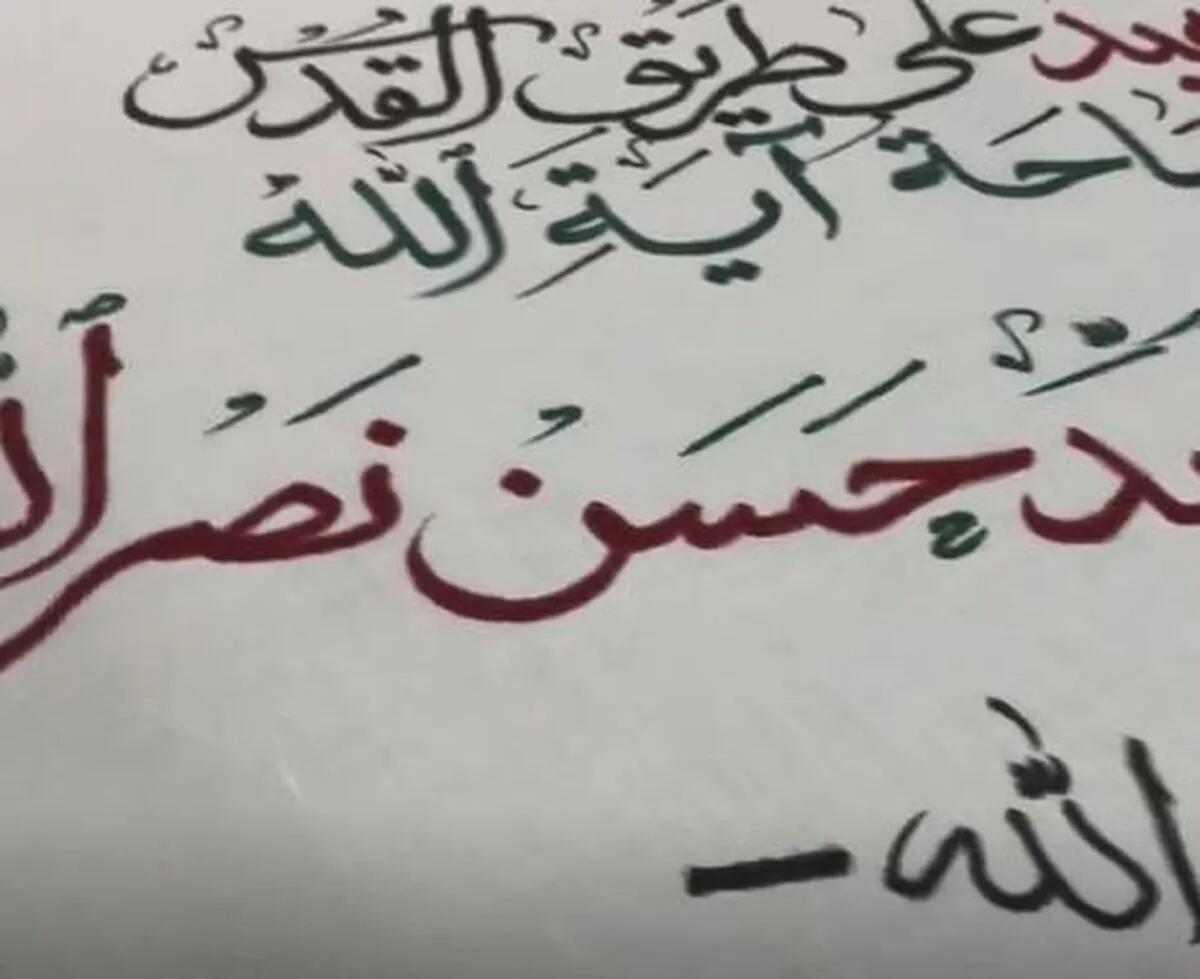 على طريق القدس
احة آية ٱلله
حسن نصر
الله –